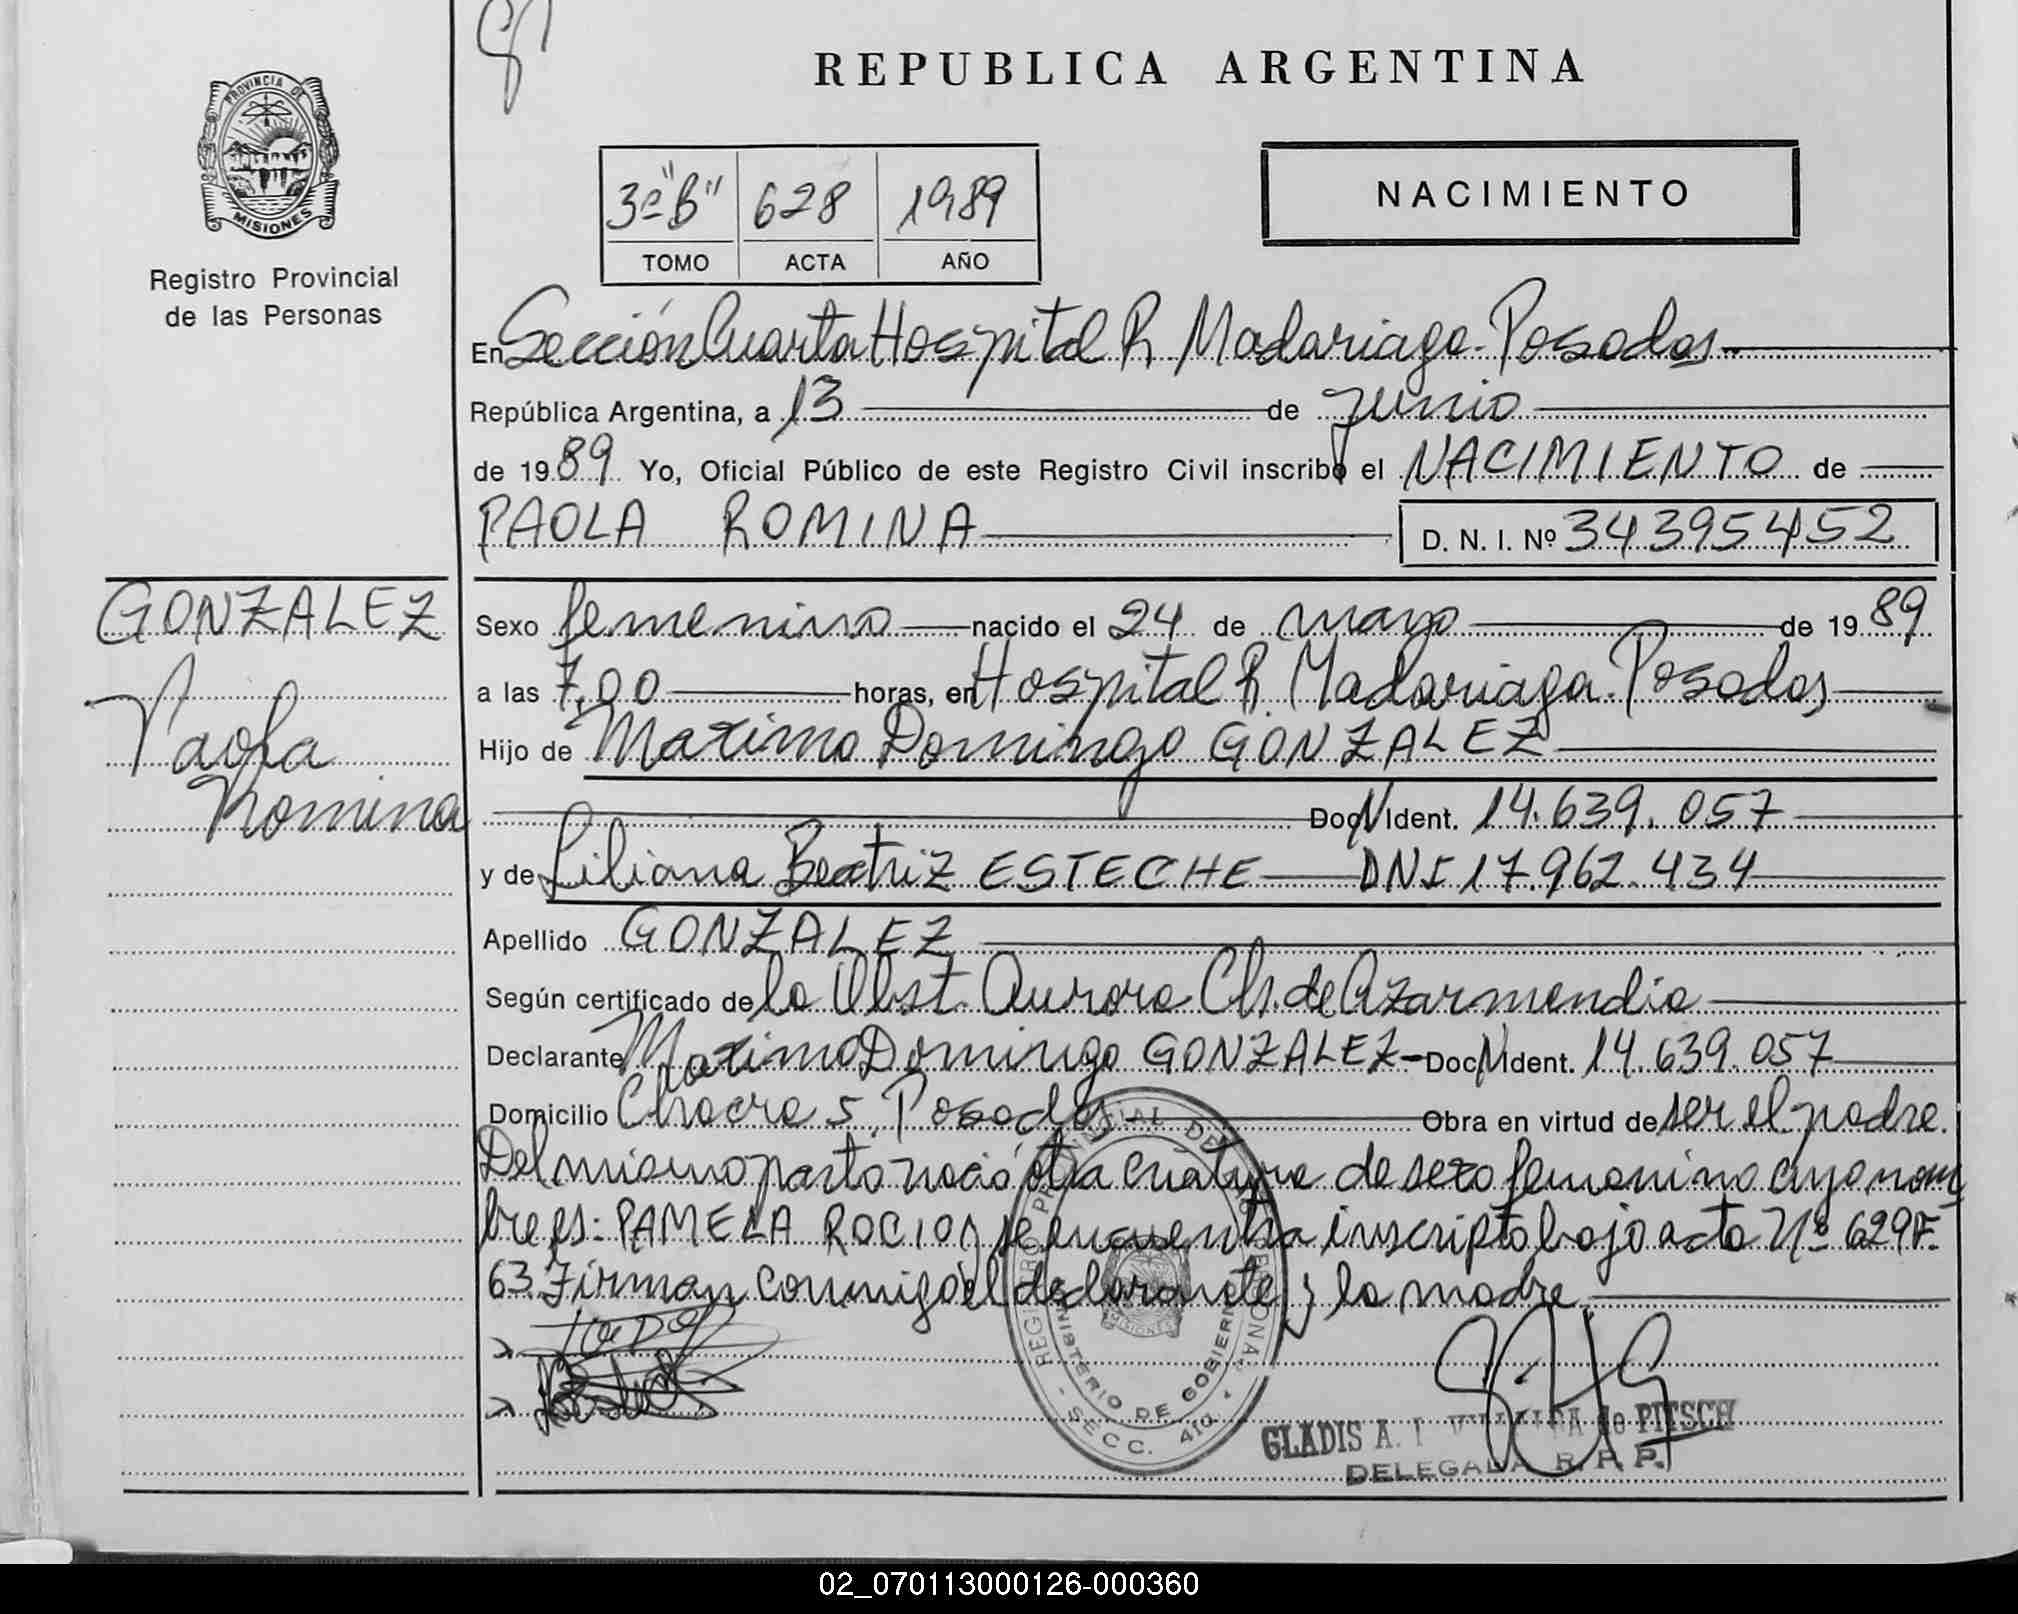 REPUBLICA ARGENTINA
PROVINCIA DE
MISIONES
Registro Provincial
de las Personas
3º "B" 628 1989
TOMO ACTA AÑO
NACIMIENTO
En Sección Cuarta Hospital R. Madariaga. Posadas
República Argentina, a 13 de junio
de 1989 Yo, Oficial Público de este Registro Civil inscribo el NACIMIENTO de
PAOLA ROMINA D. N. I. Nº 34395452
GONZALEZ
Paola
Romina
Sexo femenino nacido el 24 de mayo de 1989
a las 7,00 horas, en Hospital R. Madariaga. Posadas
Hijo de Maximo Domingo GONZALEZ
Doc N Ident. 14.639.057
y de Liliana Beatriz ESTECHE DNI 17.962.434
Apellido GONZALEZ
Según certificado de la Obst. Aurora Ch. de Azarmendia
Declarante Maximo Domingo GONZALEZ - Doc N Ident. 14.639.057
Domicilio Chacra 5. Posadas Obra en virtud de ser el padre.
Del mismo parto nació otra criatura de sexo femenino cuyo nom
bre es: PAMELA ROCIO y se encuentra inscripta bajo acta Nº 629 F.
63. Firman conmigo el declarante y la madre
REGISTRO PROVINCIAL DE LAS PERSONAS
MINISTERIO DE GOBIERNO
MISIONES
SECC. 4ta.
GLADIS A. de PITSCH
DELEGADA R. P. P.
02_070113000126-000360